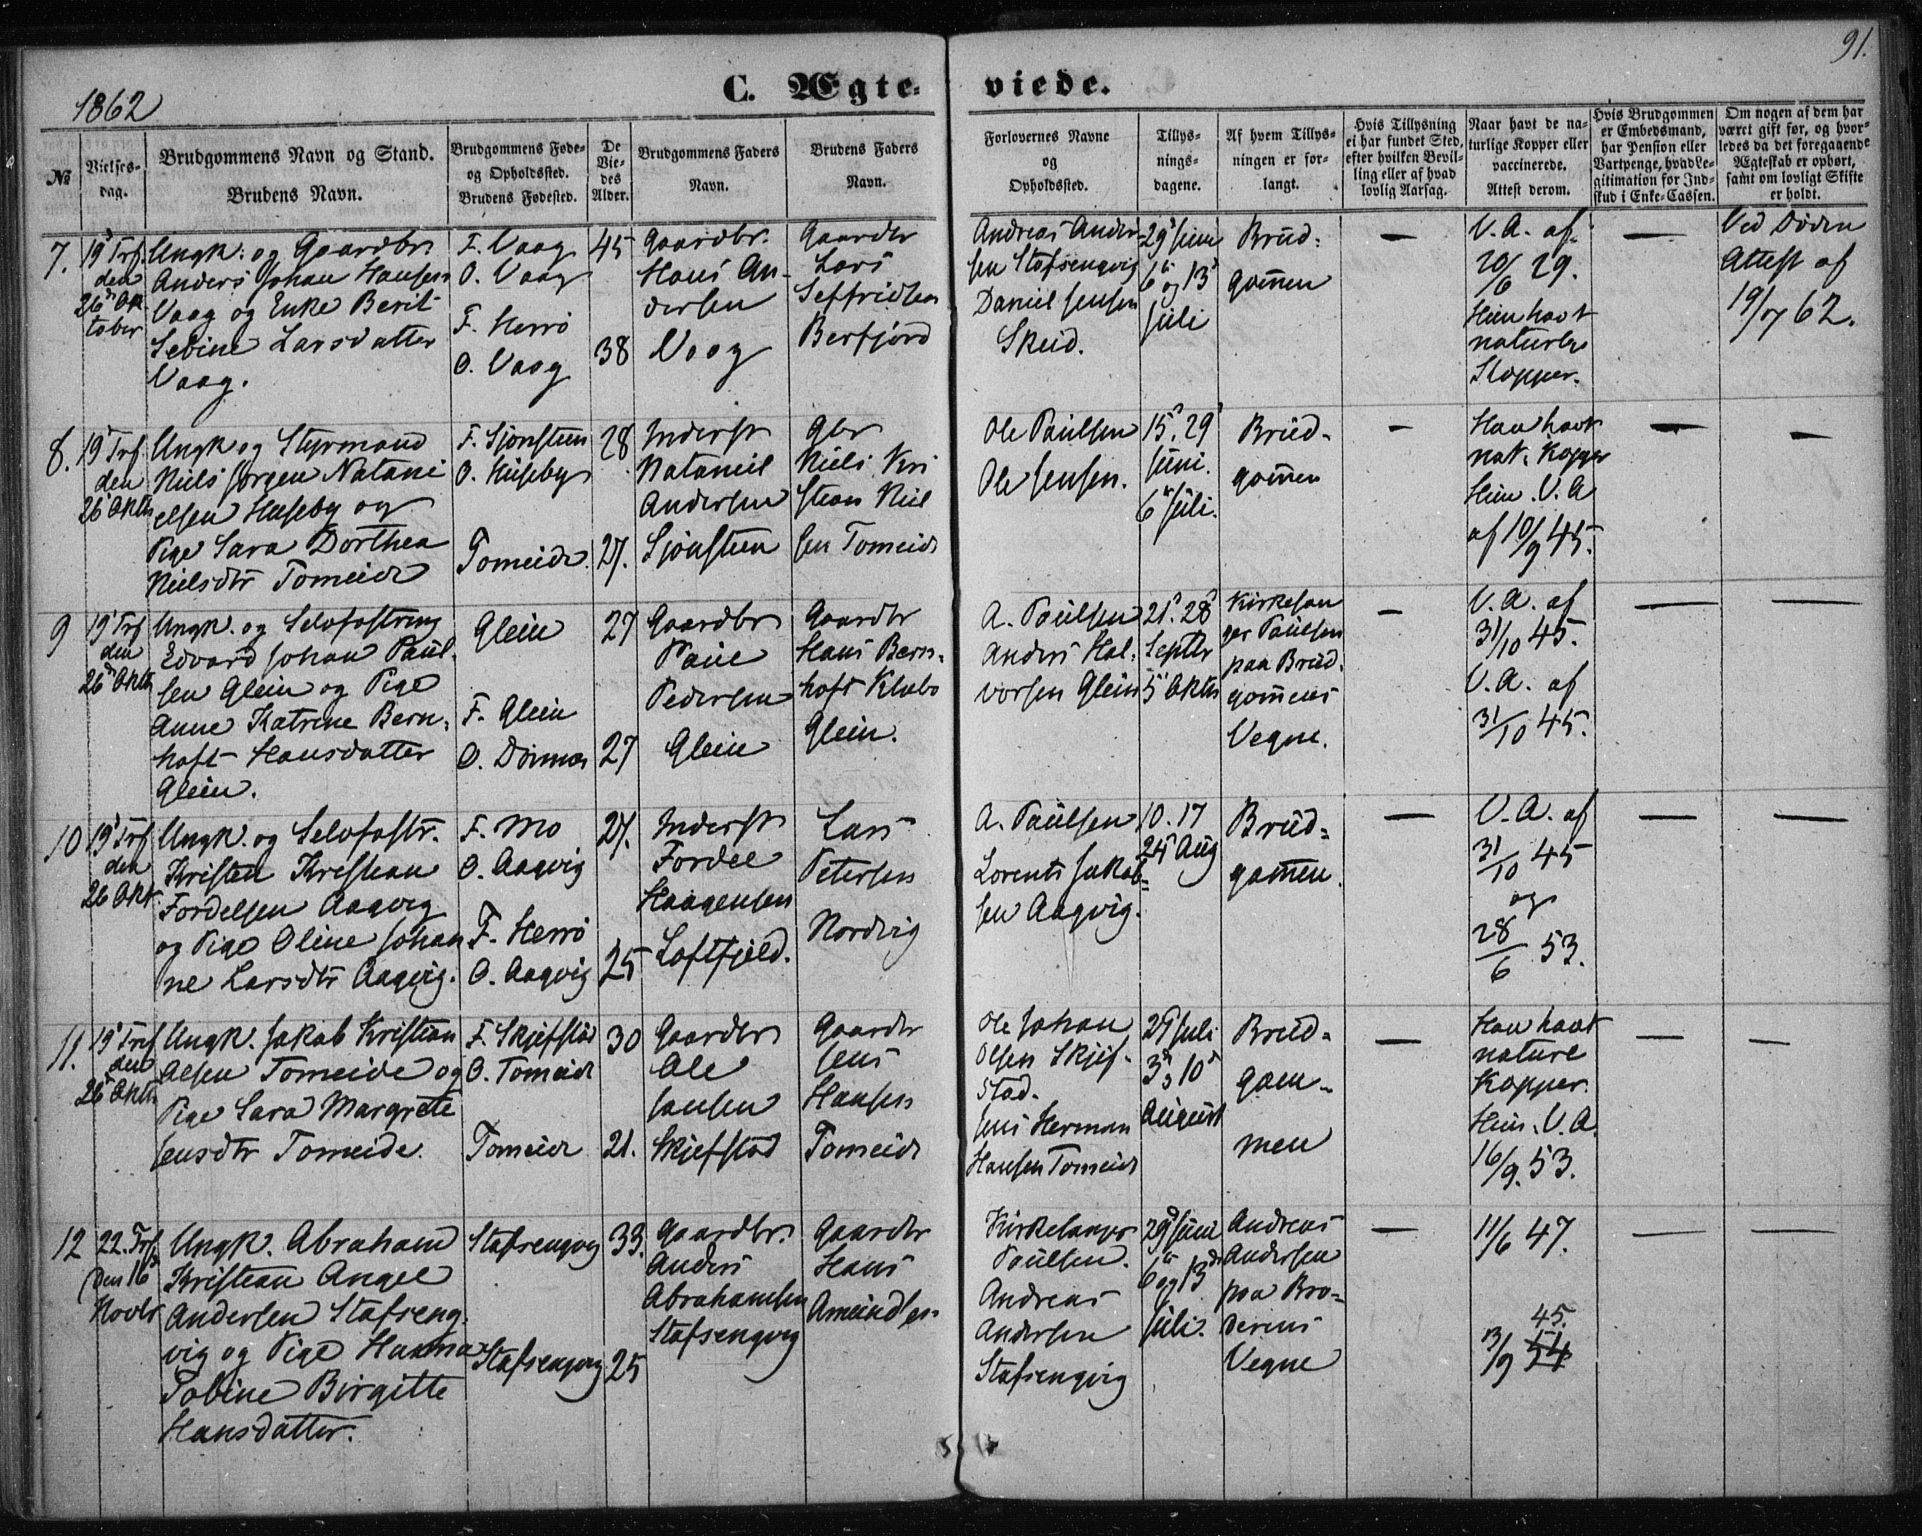 1862
C. Ægte-
viede.
91.
No
Vielses-
dag.
Brudgommens Navn og Stand.
Brudens Navn.
Brudgommens Føde-
og Opholdssted.
Brudens Fødested.
De
Vie-
des
Alder.
Brudgommens Faders
Navn.
Brudens Faders
Navn.
Forlovernes Navne
og
Opholdssted.
Tillys-
nings-
dagene.
Af hvem Tillys-
ningen er for-
langt.
Hvis Tillysning
ei har fundet Sted,
efter hvilken Bevil-
ling eller af hvad
lovlig Aarsag.
Naar havt de na-
turlige Kopper eller
vaccinerede.
Attest derom.
Hvis Brudgommen
er Embedsmand,
har Pension eller
Vartpenge, hvad Le-
gitimation for Ind-
skud i Enke-Cassen.
Om nogen af dem har
været gift før, og hvor-
ledes da det foregaaende
Ægteskab er ophørt,
samt om lovligt Skifte
er holdt.
7.
19 Trf.
den
26 Ok
tober
Ungk. og Gaardbr.
Anders Johan Hansen
Vaag og Enke Berit
Sebine Larsdatter
Vaag.
F. Vaag
O. Vaag
F. Herrø
O. Vaag
45
38
Gaardbr.
Hans An-
dersen
Vaag
Gaardbr
Lars
Seffridsen
Berfjord
Andreas Ander-
sen Stafsengvig
Daniel Jensen
Skeid.
29 Juni
6 og 13
Juli
Brud-
gommen
—
V. A. af
20/6 29.
Hun havt
naturlige
Kopper.
—
Ved Døden
Attest af
19/7 62.
8.
19 Trf.
den
26 Oktb
Ungk. og Styrmand
Niels Jørgen Natani
elsen Huseby og
Pige Sara Dorthea
Nielsdtr Tomeide
F. Sjonsteen
O. Huseby
Tomeide.
28
27.
Inderst
Nataniel
Andersen
Sjønsteen
Gbr
Niels Kri
stian Niel
sen Tomeide
Ole Paulsen
Ole Jensen.
15. 29
Juni.
6 Juli.
Brud-
gommen
—
Han havt
nat. Kopper
Hun. V. A
af 10/9 45.
—
—
9
19 Trf
den
26 Oktb
Ungk. og Selvfostring
Edvard Johan Paul-
sen Glein og Pige
Anne Katrine Bern-
hoft Hansdatter
Glein.
Glein
F. Glein
O. Dønnes
27
27
Gaardbr
Paul
Pedersen
Glein
Gaardbr
Hans Bern-
hoft Klæbo
Glein.
A. Paulsen
Anders Hal-
vorsen Glein
21. 28
Septbr
5 Oktbr
Kirkesan
ger Paulsen
paa Brud-
gommens
Vegne.
—
V. A. af
31/10 45.
V. A. af
31/10 45.
—
—
10
19 Trf
den
26 Okt.
Ungk. og Selvfostr.
Kristen Kristian
Fordelsen Aagvig
og Pige Oline Johan
ne Larsdtr Aagvig.
F. Mo
O. Aagvig
F. Herrø
O. Aagvig
27.
25
Inderst
Fordel
Haagensen
Loftfjeld.
Lars
Petersen
Nordvig
A. Paulsen
Lorents Jakob-
sen Aagvig.
10. 17
24 Aug
Brud-
gommen.
—
V. A. af
31/10 45
og
28/6 53.
—
—
11.
19 Trf
den
26 Oktb
Ungk. Jakob Kristian
Olsen Tomeide og
Pige Sara Margrete
Jensdtr Tomeide.
F. Skjefstad
O. Tomeide
Tomeide
30
21.
Gaardbr
Ole
Jensen
Skjefstad
Gaardbr
Jens
Hansen
Tomeide
Ole Johan
Olsen Skjef-
stad.
Jens Herman
Hansen Tomeide
Juli
3, 10
August
Brud-
gom-
men
—
Han havt
naturl
Kopper.
Hun. V. A.
16/9. 53.
—
—
12
22. Trf.
den 16
Novbr
Ungk. Abraham
Kristian Angel
Andersen Stafseng-
vig og Pige Hanna
Tobine Birgitte
Hansdatter.
Stafsengvig
Stafsengvig
33.
25
Gaardbr.
Anders
Abrahamsen
Stafsengvig
Gaardbr
Hans
Amundsen
Kirkesanger
Paulsen.
Andreas
Andersen
Stafsengvig
29 Juni
6 og 13
Juli.
Andreas
Andersen
paa Bro-
derens
Vegne
—
11/6 47.
45.
13/9 54
—
—